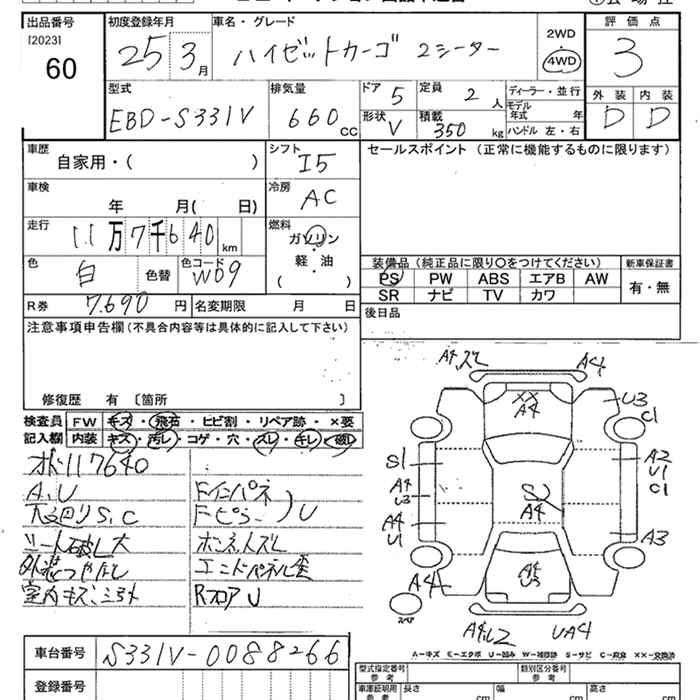 出品番号 初度登録年月 車名・グレード 評価点
[2023] 60
25 3月 ハイゼットカーゴ 2シーター
2WD
4WD
3
型式 排気量 ドア 5 定員 2人 ディーラー・並行 外装 内装
モデル年式 年
EBD-S331V 660cc 形状 V 積載 350kg ハンドル 左・右 D D
車歴 シフト セールスポイント (正常に機能するものに限ります)
自家用・( ) I5
車検 冷房
年 月( 日) AC
走行 燃料
11万7千640km ガソリン
軽・油
( )
色 色コード 装備品 (純正品に限り○をつけてください) 新車保証書
白 色替 W09 PS PW ABS エアB AW 有・無
SR ナビ TV カワ
R券 7,690円 名変期限 月 日 後日品
注意事項申告欄(不具合内容等は具体的に記入して下さい)
修復歴 有 〔箇所 〕
検査員 FW キズ・飛石・ヒビ割・リペア跡・×要
記入欄 内装 キズ・汚レ・コゲ・穴・スレ・キレ・破レ
117640
A.U Fインパネ
下廻りS.C Fピラー U
シート破レ大
外装つやなし エンドパネル歪
室内キズ RフロアU
A4 A4
XX
A4
U3
C1
S1 A2
U1
A4 C1
U3 A4
A4
U1 A3
A4
U3
A4
スペア
UA4
A-キズ E-エクボ U-凹み W-補修跡 S-サビ C-腐食 XX-交換済
車台番号 S331V-0088266
型式指定番号 参考 類別区分番号 参考
登録番号 車庫証明用 参考 長さ cm 幅 cm 高さ cm